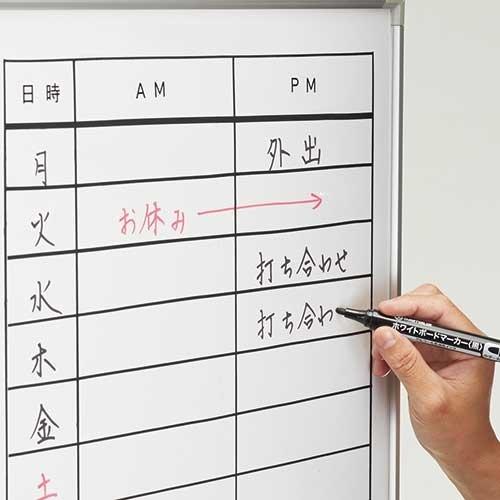 日時 AM PM
月 外出
火 お休み →
水 打ち合わせ
木 打ち合わ
金
土
ホワイトボードマーカー(黒)